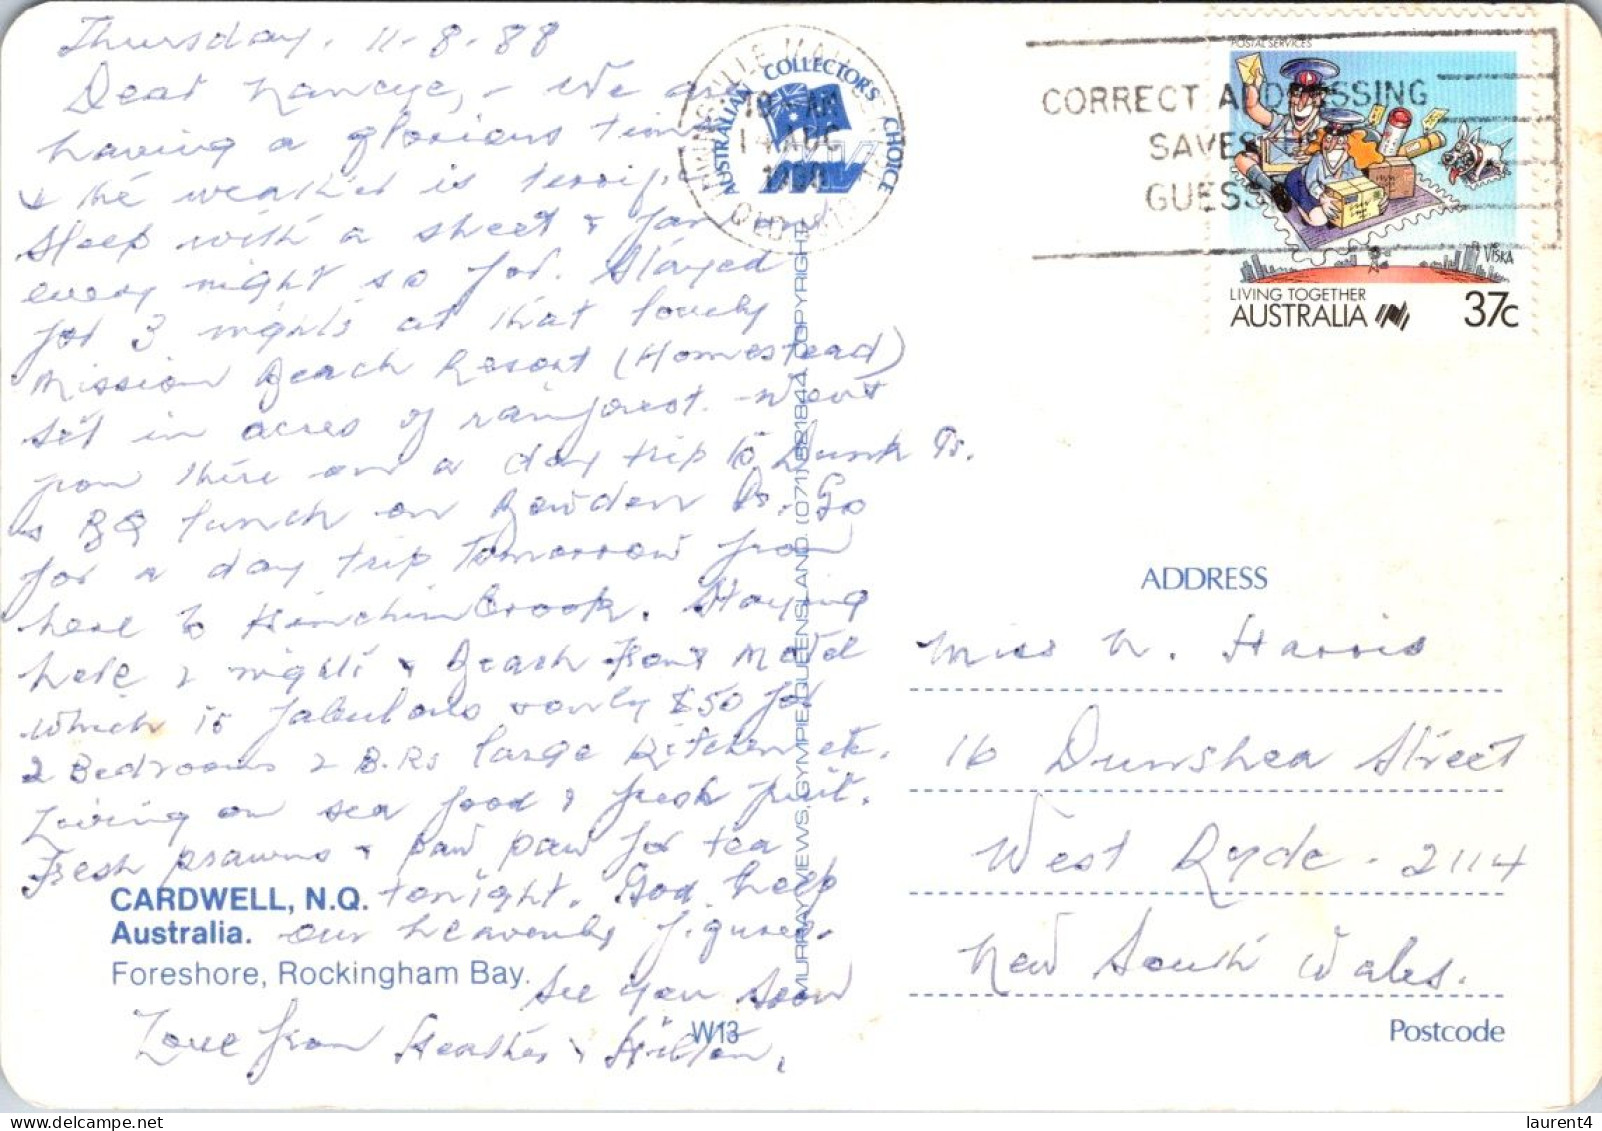 Thursday. 11-8-88
Dear Nancye, - We are
having a glorious time
& the weather is terrific
sleep with a sheet &
every night so far. Stayed
for 3 nights at that lovely
Mission Beach Resort (Homestead)
set in acres of rainforest. Went
from there on a day trip to Dunk Is.
& BQ lunch on Bowden Is. Go
for a day trip tomorrow from
here to Hinchinbrook. Staying
here 2 nights & Beach Front Motel
which is fabulous & only $50 for
2 Bedrooms 2 B.Rs large kitchen etc.
Living on sea food & fresh fruit.
Fresh prawns & paw paw for tea
tonight. God help
our heavenly figures.
See you soon
Love from Heather & Hilton.
CARDWELL, N.Q.
Australia.
Foreshore, Rockingham Bay.
W13
MURRAY VIEWS, GYMPIE, QUEENSLAND. (071) 821844. COPYRIGHT
AUSTRALIAN COLLECTORS CHOICE
14 AUG
QLD
CORRECT ADDRESSING
SAVES
GUESS
POSTAL SERVICES
VISKA
LIVING TOGETHER
AUSTRALIA 37c
ADDRESS
Miss N. Harris
16 Dunshea Street
West Ryde - 2114
New South Wales.
Postcode
laurent4